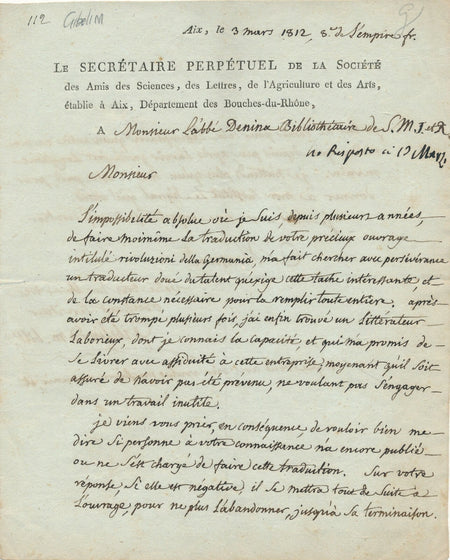 112 Gibelin
Aix, le 3 mars 1812, 8e. de l'empire fr.
LE SECRÉTAIRE PERPÉTUEL DE LA SOCIÉTÉ
des Amis des Sciences, des Lettres, de l'Agriculture et des Arts,
établie à Aix, Département des Bouches-du-Rhône,
A Monsieur l'abbé Denina Bibliothécaire de S. M. I. et R.
Risposto a 19 Marzo
Monsieur
L'impossibilité absolue où je suis, depuis plusieurs années,
de faire moimême la traduction de votre précieux ouvrage
intitulé rivoluzioni della Germania, m'a fait chercher avec persévérance
un traducteur doué du talent qu'exige cette tache intéressante et
de la constance nécessaire pour la remplir toute entiere. après
avoir été trompé plusieurs fois, j'ai enfin trouvé un Littérateur
Laborieux, dont je connais la capacité et qui m'a promis de
se livrer avec assiduité à cette entreprise, moyenant qu'il soit
assuré de n'avoir pas été prévenu, ne voulant pas s'engager
dans un travail inutile.
je viens vous prier, en conséquence, de vouloir bien me
dire si personne à votre connaissance n'a encore publié
ou ne s'est chargé de faire cette traduction. Sur votre
réponse, si elle est négative, il se mettra tout de suite à
l'ouvrage, pour ne plus l'abandonner, jusqu'à sa terminaison.